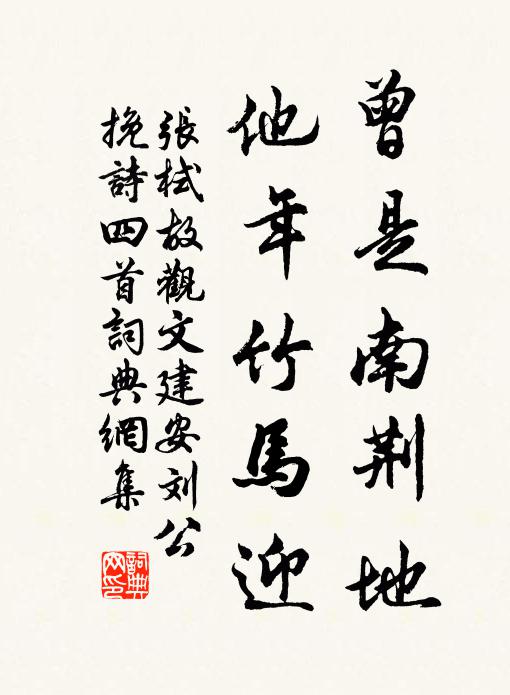 曾是南荆地
他年竹馬迎
張栻故觀文建安刘公
挽詩四首詞典網集
詞典
网印